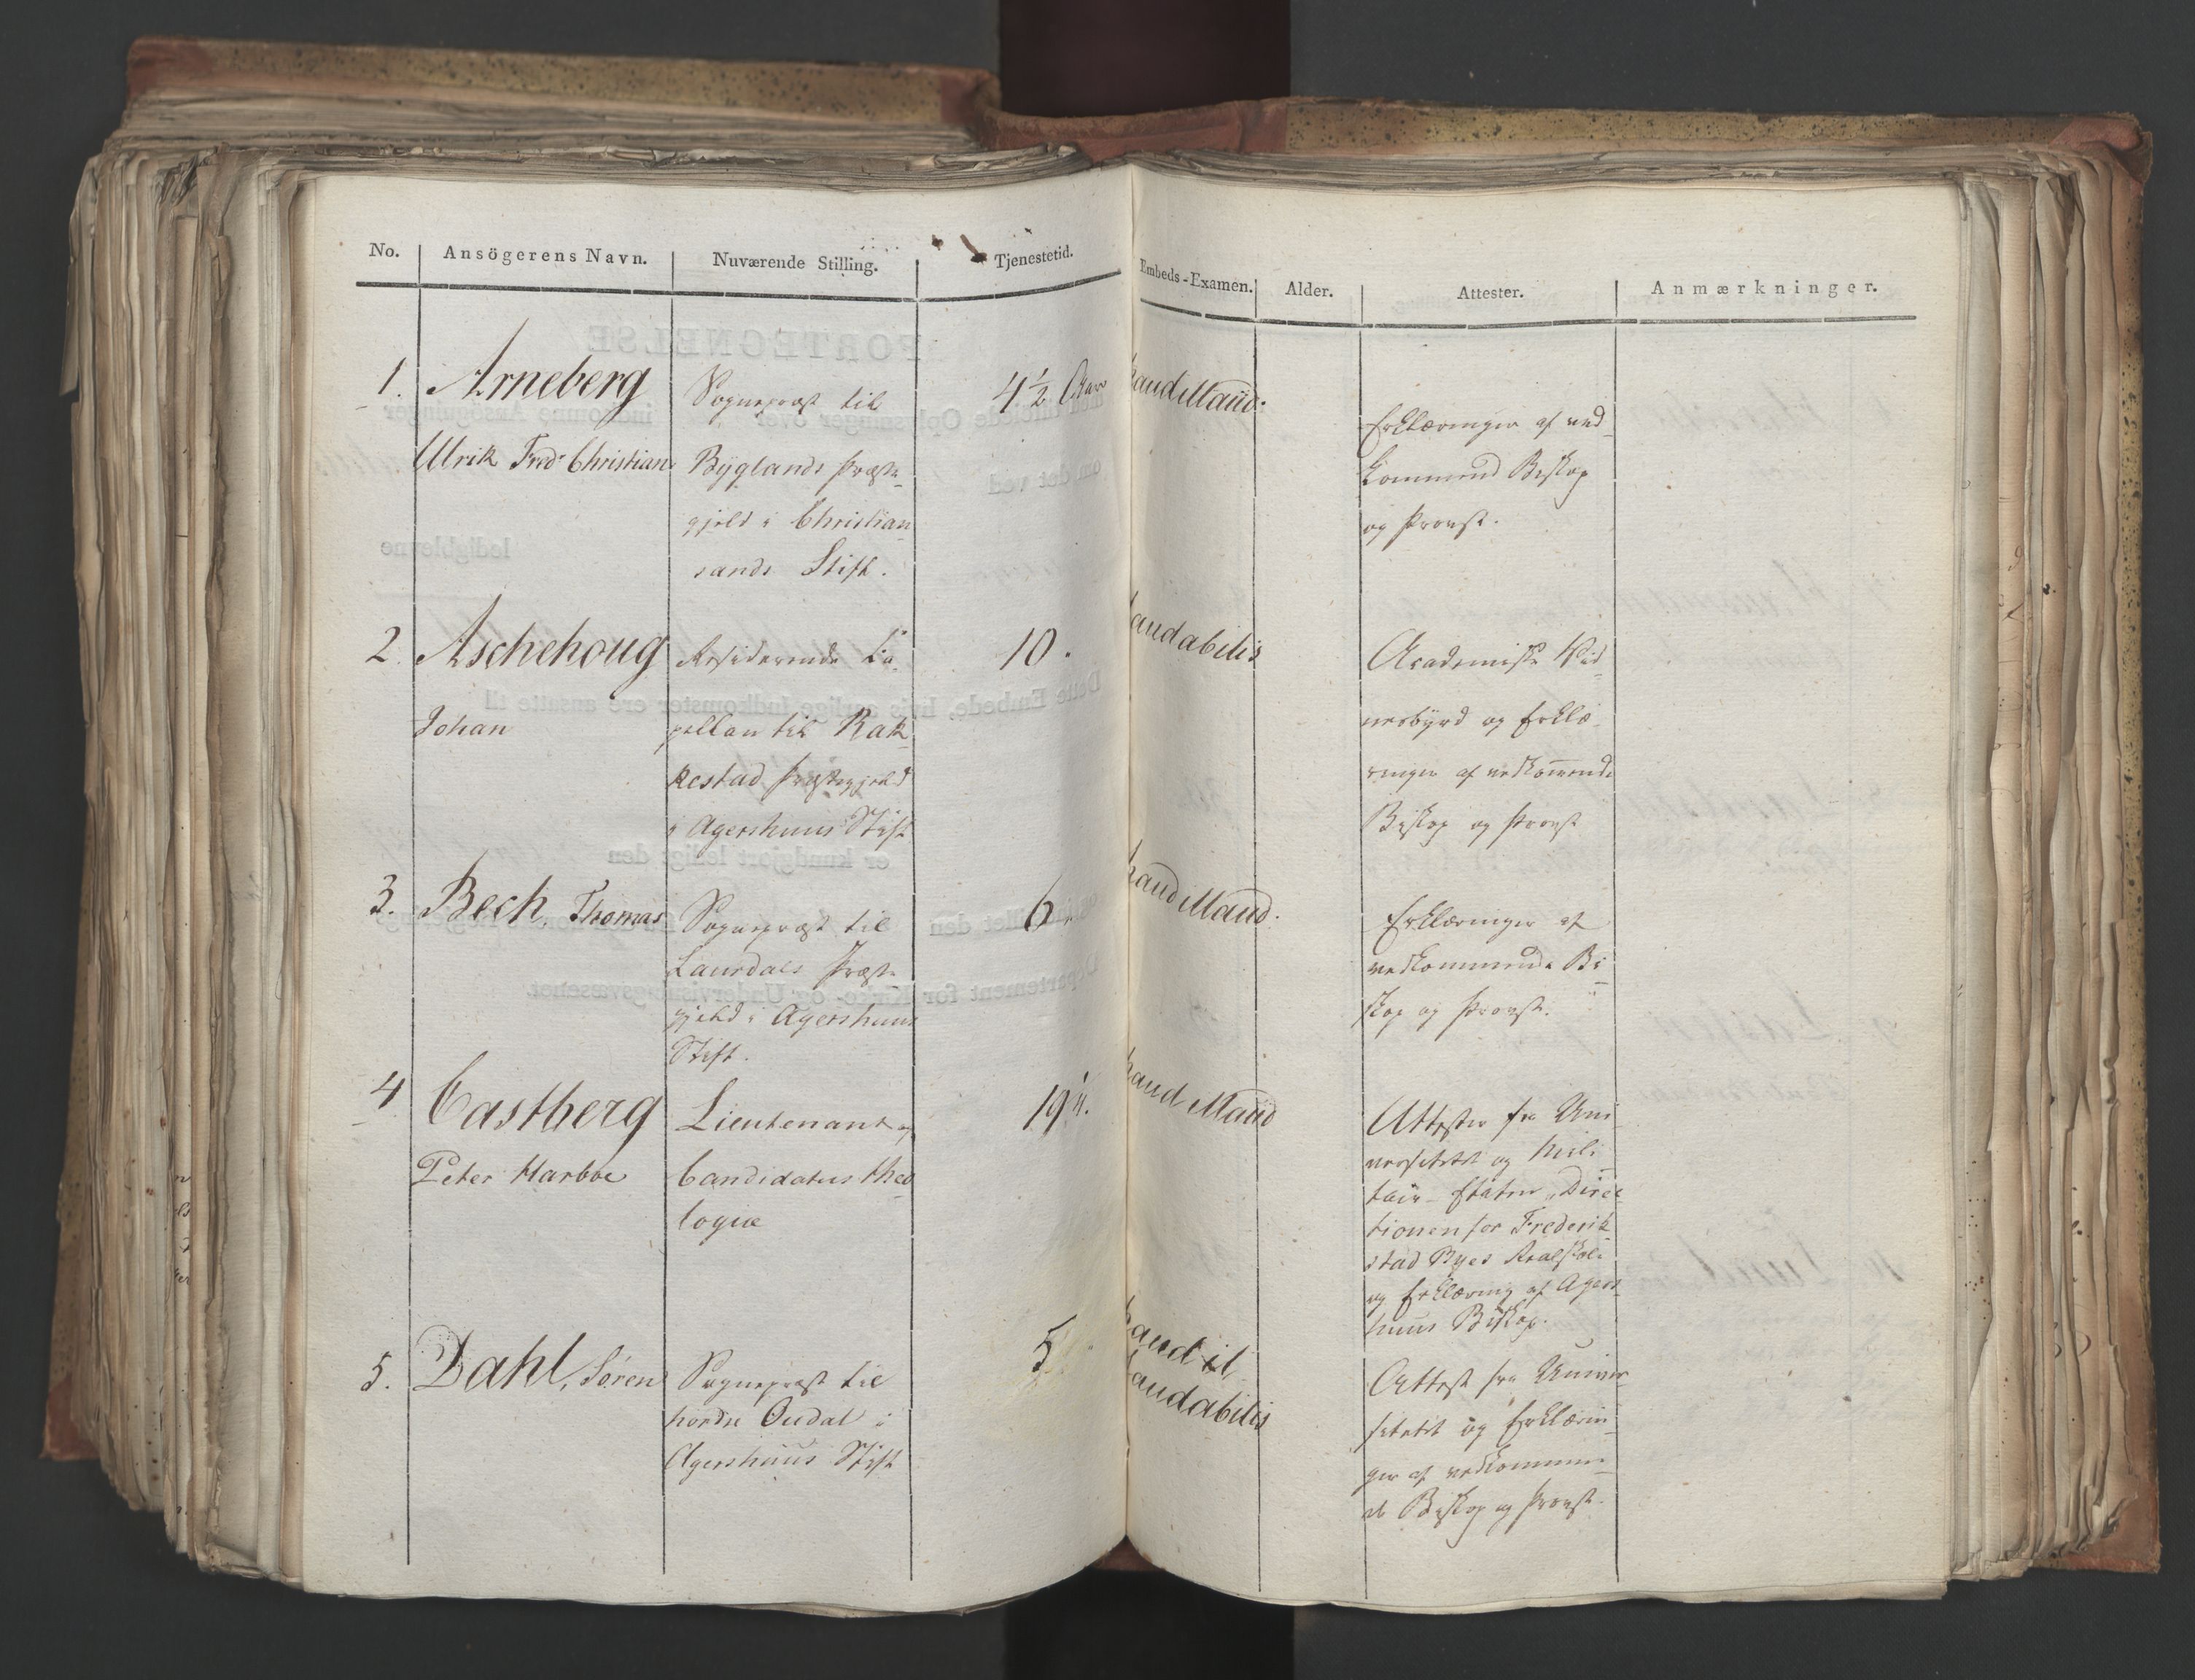 No. Ansögerens Navn. Nuværende Stilling. Tjenestetid. Embeds-Examen. Alder. Attester. Anmærkninger.
1. Arneberg
Ulrik Fredr Christian
Sognepræst til
Byglands Præste-
gjeld i Christian-
sands Stift.
4 1/2 Aar
haud illaud.
Erklæringer af ved-
kommend Biskop
og Provst.
2. Aschehoug
Johan
Residerende Ca-
pellan til Rak-
kestad Præstegjeld
i Agershuus Stift
10.
laudabilis
Academiske Vid-
nesbyrd og Erklæ-
ringer af vedkommende
Biskop og Provst
3. Bech, Thomas
Sognepræst til
Laurdals Præste-
gjeld i Agershuus
Stift.
6.
haud illaud.
Erklæringer af
vedkommende Bi-
skop og Provst.
4 Castberg
Peter Harboe
Lieutenant og
Candidatus theo-
logiæ
19 1/4.
haud illaud
Attester fra Uni-
versitetet og Mili-
tair-Etaten, Direc-
tionen for Frederik-
stad Byes Realskole
og Erklæring af Agers-
huus Biskop.
5. Dahl, Sören
Sognepræst til
nordre Oudal i
Agershuus Stift
5
laudabilis
Attest fra Univer-
sitetet og Erklærin-
ger af vedkommen-
de Biskop og Provst.